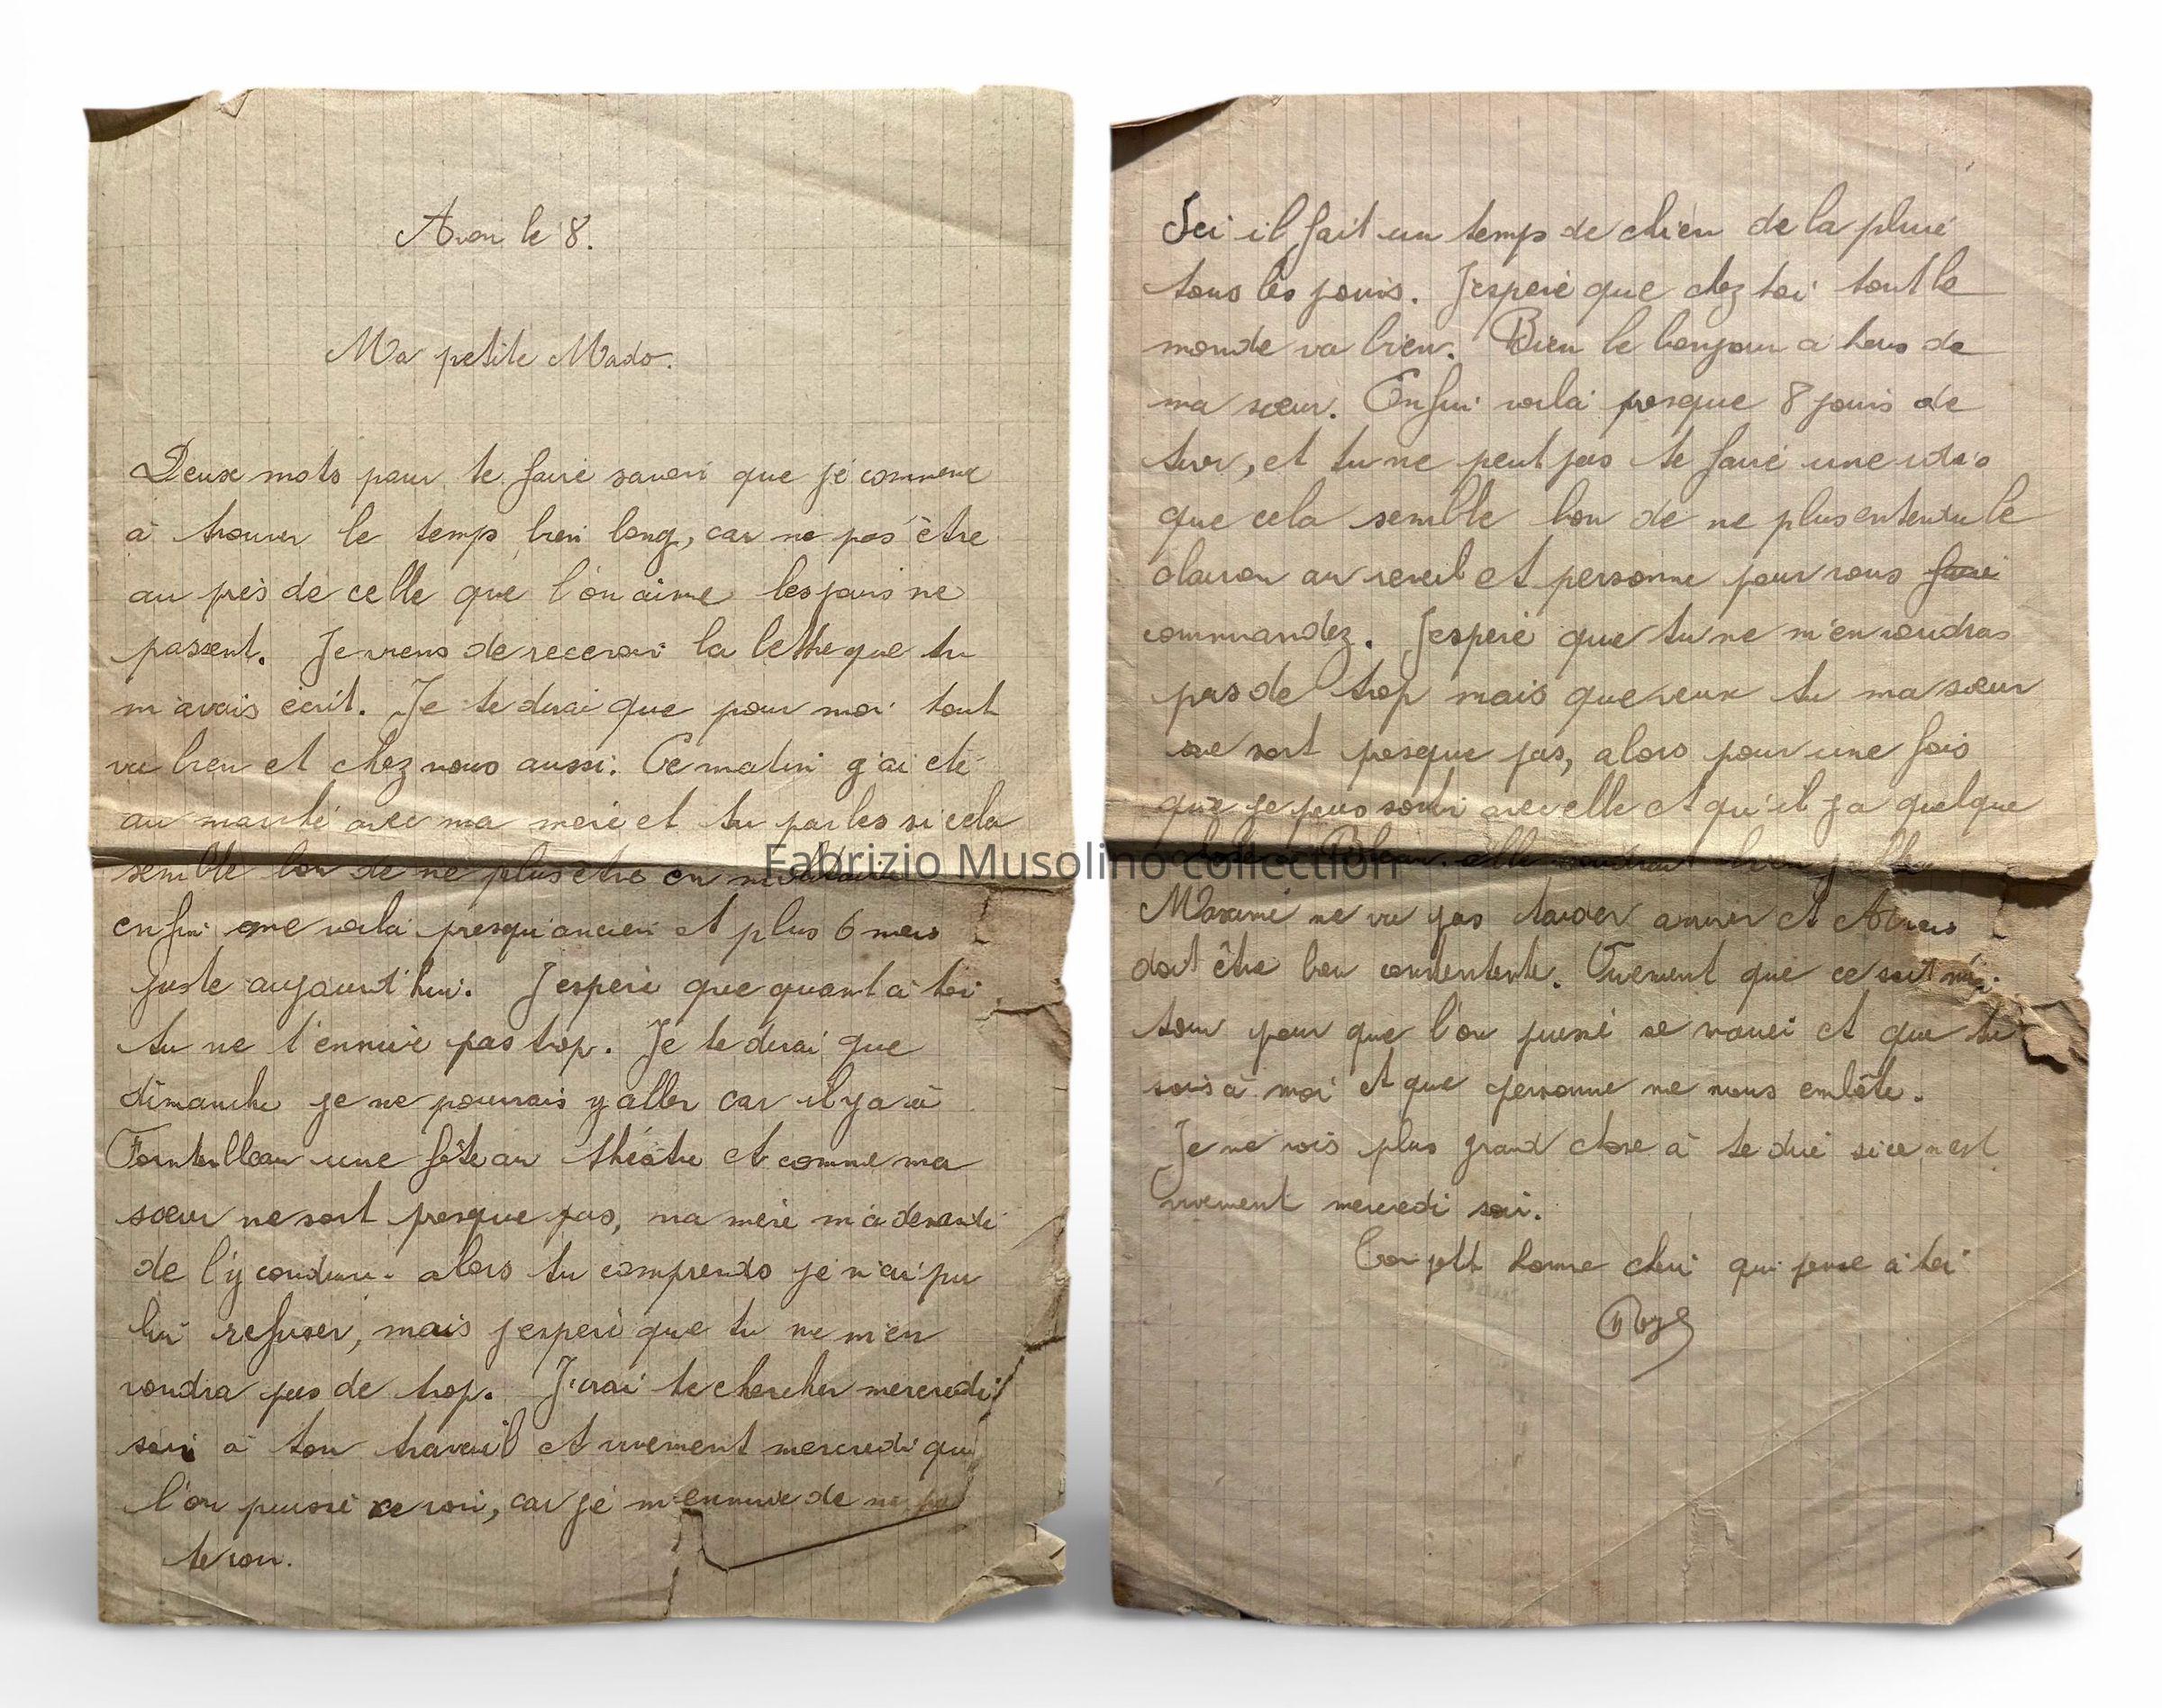 Avon le 8.
Ma petite Mado.
Deux mots pour te faire savoir que je commence
à trouver le temps bien long, car ne pas être
au près de celle que l'on aime les jours ne
passent. Je viens de recevoir la lettre que tu
m'avais écrit. Je te dirai que pour moi tout
va bien et chez nous aussi. Ce matin j'ai été
au marché avec ma mère et tu parles si cela
semble bon de ne plus être en militaire
enfin me voila presqu'ancien et plus 6 mois
juste aujourd'hui. J'espère que quant à toi
tu ne t'ennuie pas trop. Je te dirai que
dimanche je ne pourrais y aller car il y a à
Fontainebleau une fête au théâtre et comme ma
sœur ne sort presque pas, ma mère m'a demandé
de l'y conduire. alors tu comprends je n'ai pu
lui refuser, mais j'espère que tu ne m'en
voudra pas de trop. J'irai te chercher mercredi
soir à ton travail et vivement mercredi que
l'on puisse ce voir, car je m'ennuie de ne pas
te voir.
Ici il fait un temps de chien de la pluie
tous les jours. J'espère que chez toi tout le
monde va bien. Bien le bonjour a tous de
ma sœur. Enfin voila presque 8 jours de
tir, et tu ne peut pas te faire une idée
que cela semble bon de ne plus entendu le
clairon au reveil et personne pour vous faire
commandez. J'espère que tu ne m'en voudras
pas de trop mais que veux tu ma sœur
ne sort presque pas, alors pour une fois
que je peus sortir avec elle et qu'il y a quelque
elle voudrait bien
Maxime ne va pas tarder arriver et
doit être bon contentente. Vivement que ce soit
tour pour que l'on puisse se marier et que tu
sois à moi et que personne ne nous embête.
Je ne vois plus grand chose à te dire si ce n'est
vivement mercredi soir.
Ton petit homme cheri qui pense à toi
Fabrizio Musolino collection